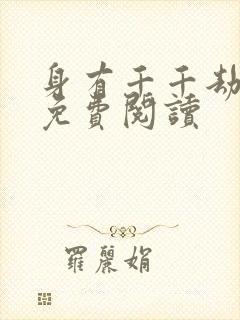 身有千千劫
免費閱讀
羅麗娟